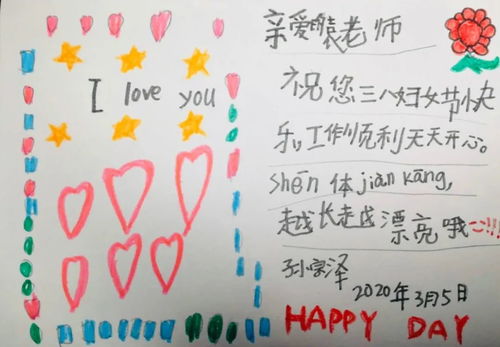 I love you
亲爱的袁老师
祝您三八妇女节快
乐,工作顺利天天开心。
shēn体jiàn kāng,
越长越漂亮哦~!!!
孙宗泽
2020年3月5日
HAPPY DAY